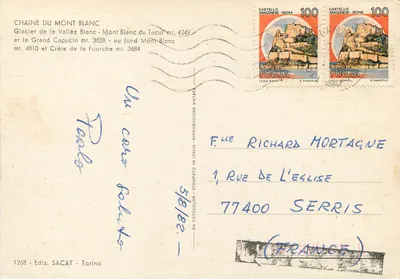 CHAINE DU MONT BLANC
Glacier de la Vallée Blanc - Mont Blanc du Tacul mt. 4249
et le Grand Capucin mt. 3838 - au fond Mont Blanc
mt. 4810 et Crête de la Fourche mt. 3684
CASTELLO
ARAGONESE - ISCHIA
100
CASTELLO
ARAGONESE - ISCHIA
100
Un caro saluto
Paolo
5/8/82 -
Flle RICHARD MORTAGNE
1, RUE DE L'EGLISE
77400 SERRIS
(FRANCE)
1268 - Ediz. SACAT - Torino